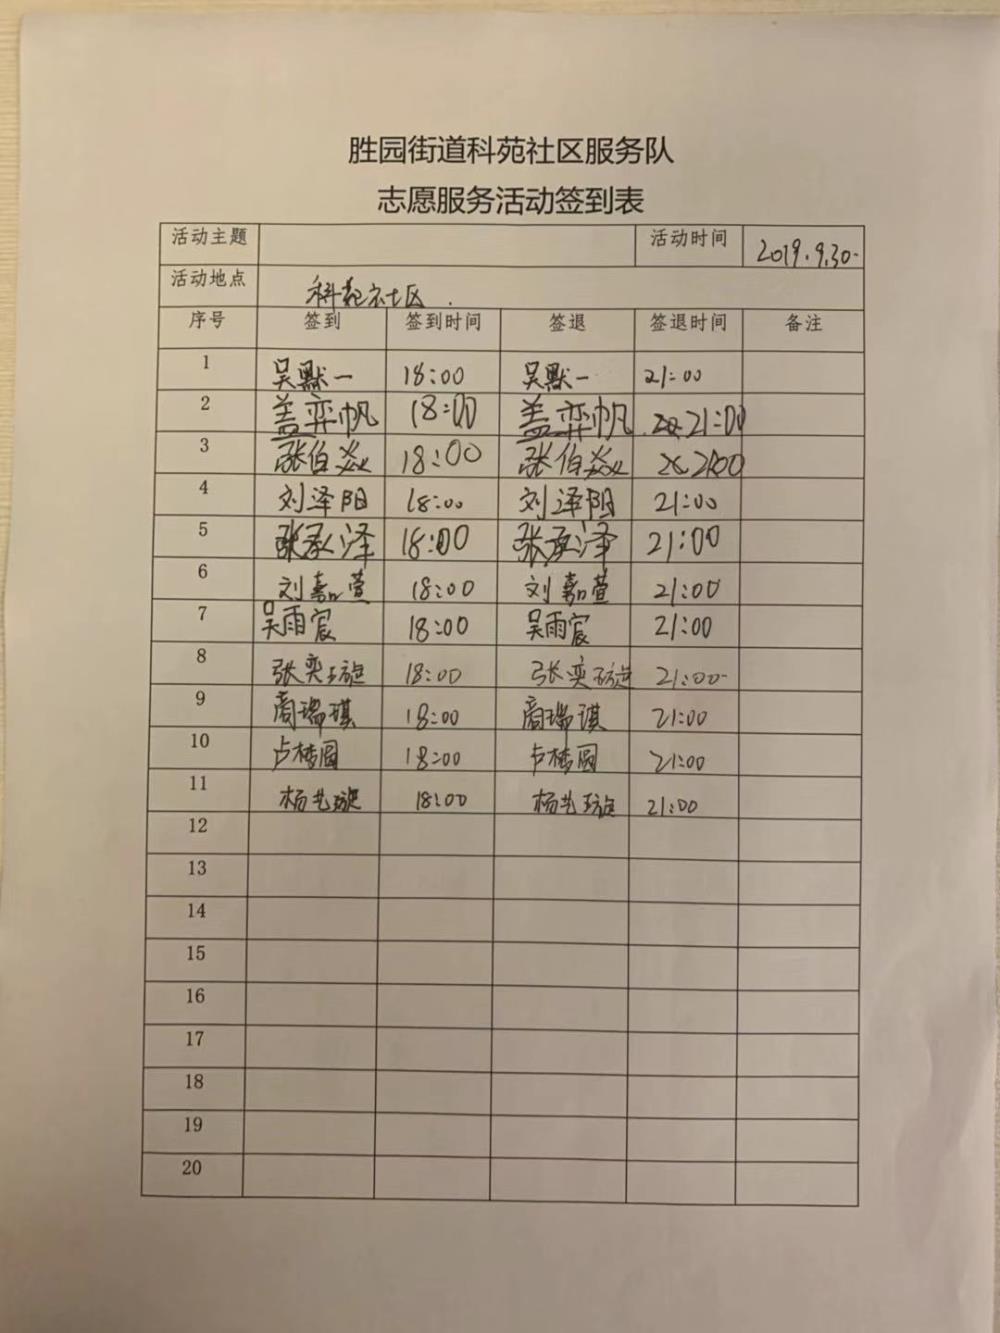 胜园街道科苑社区服务队
志愿服务活动签到表
活动主题 活动时间 2019.9.30.
活动地点 科苑社区.
序号 签到 签到时间 签退 签退时间 备注
1 吴默一 18:00 吴默一 21:00
2 盖弈帆 18:00 盖弈帆 21:00
3 张伯焱 18:00 张伯焱 21:00
4 刘泽阳 18:00 刘泽阳 21:00
5 张承泽 18:00 张承泽 21:00
6 刘嘉萱 18:00 刘嘉萱 21:00
7 吴雨宸 18:00 吴雨宸 21:00
8 张奕璇 18:00 张奕璇 21:00
9 周瑞琪 18:00 周瑞琪 21:00
10 卢梦圆 18:00 卢梦圆 21:00
11 杨艺璇 18:00 杨艺璇 21:00
12
13
14
15
16
17
18
19
20